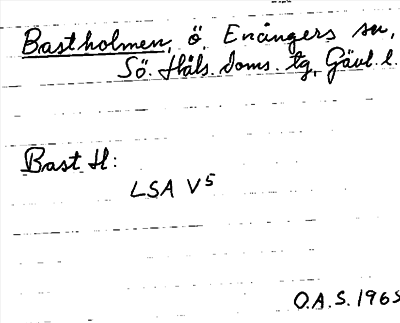 Bastholmen, ö, Enångers sn,
Sö. Häls. doms. tg, Gävl. l.
Bast H:
LSA V5
O.A.S. 1965